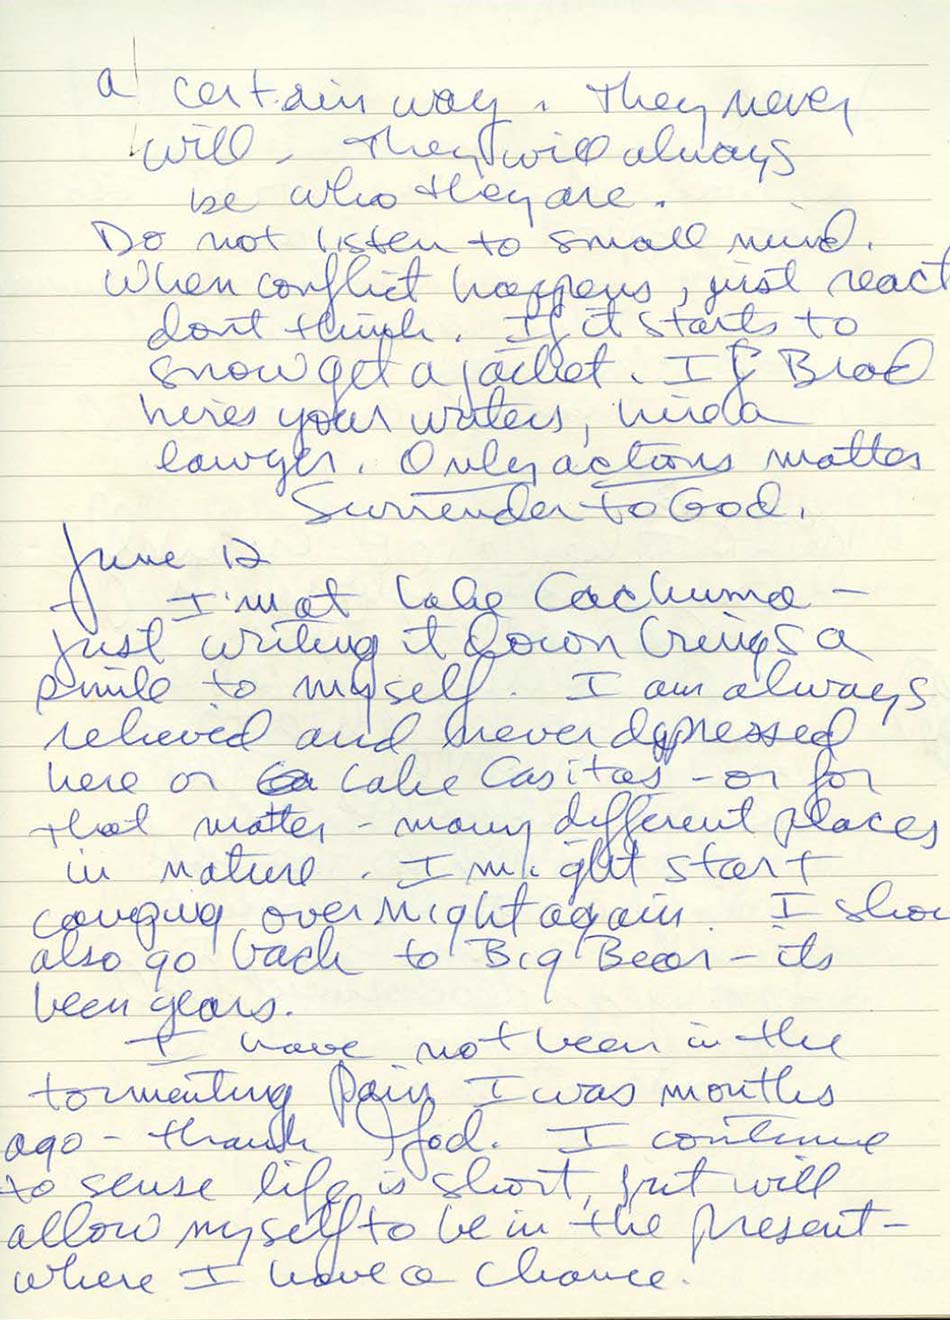 a certain way. They never
will. They will always
be who they are.
Do not listen to small mind.
When conflict happens, just react
dont think. If it starts to
snow get a jacket. If Brad
hires your writers, hire a
lawyer. Only actions matter
Surrender to God.
June 12
I'm at Lake Cachuma –
just writing it down brings a
smile to myself. I am always
relieved and never depressed
here or Lake Casitas – or for
that matter – many different places
in nature. I might start
camping overnight again. I shou
also go back to Big Bear – its
been years.
I have not been in the
tormenting pain I was months
ago – thank God. I continue
to sense life is short, but will
allow myself to be in the present –
where I have a chance.